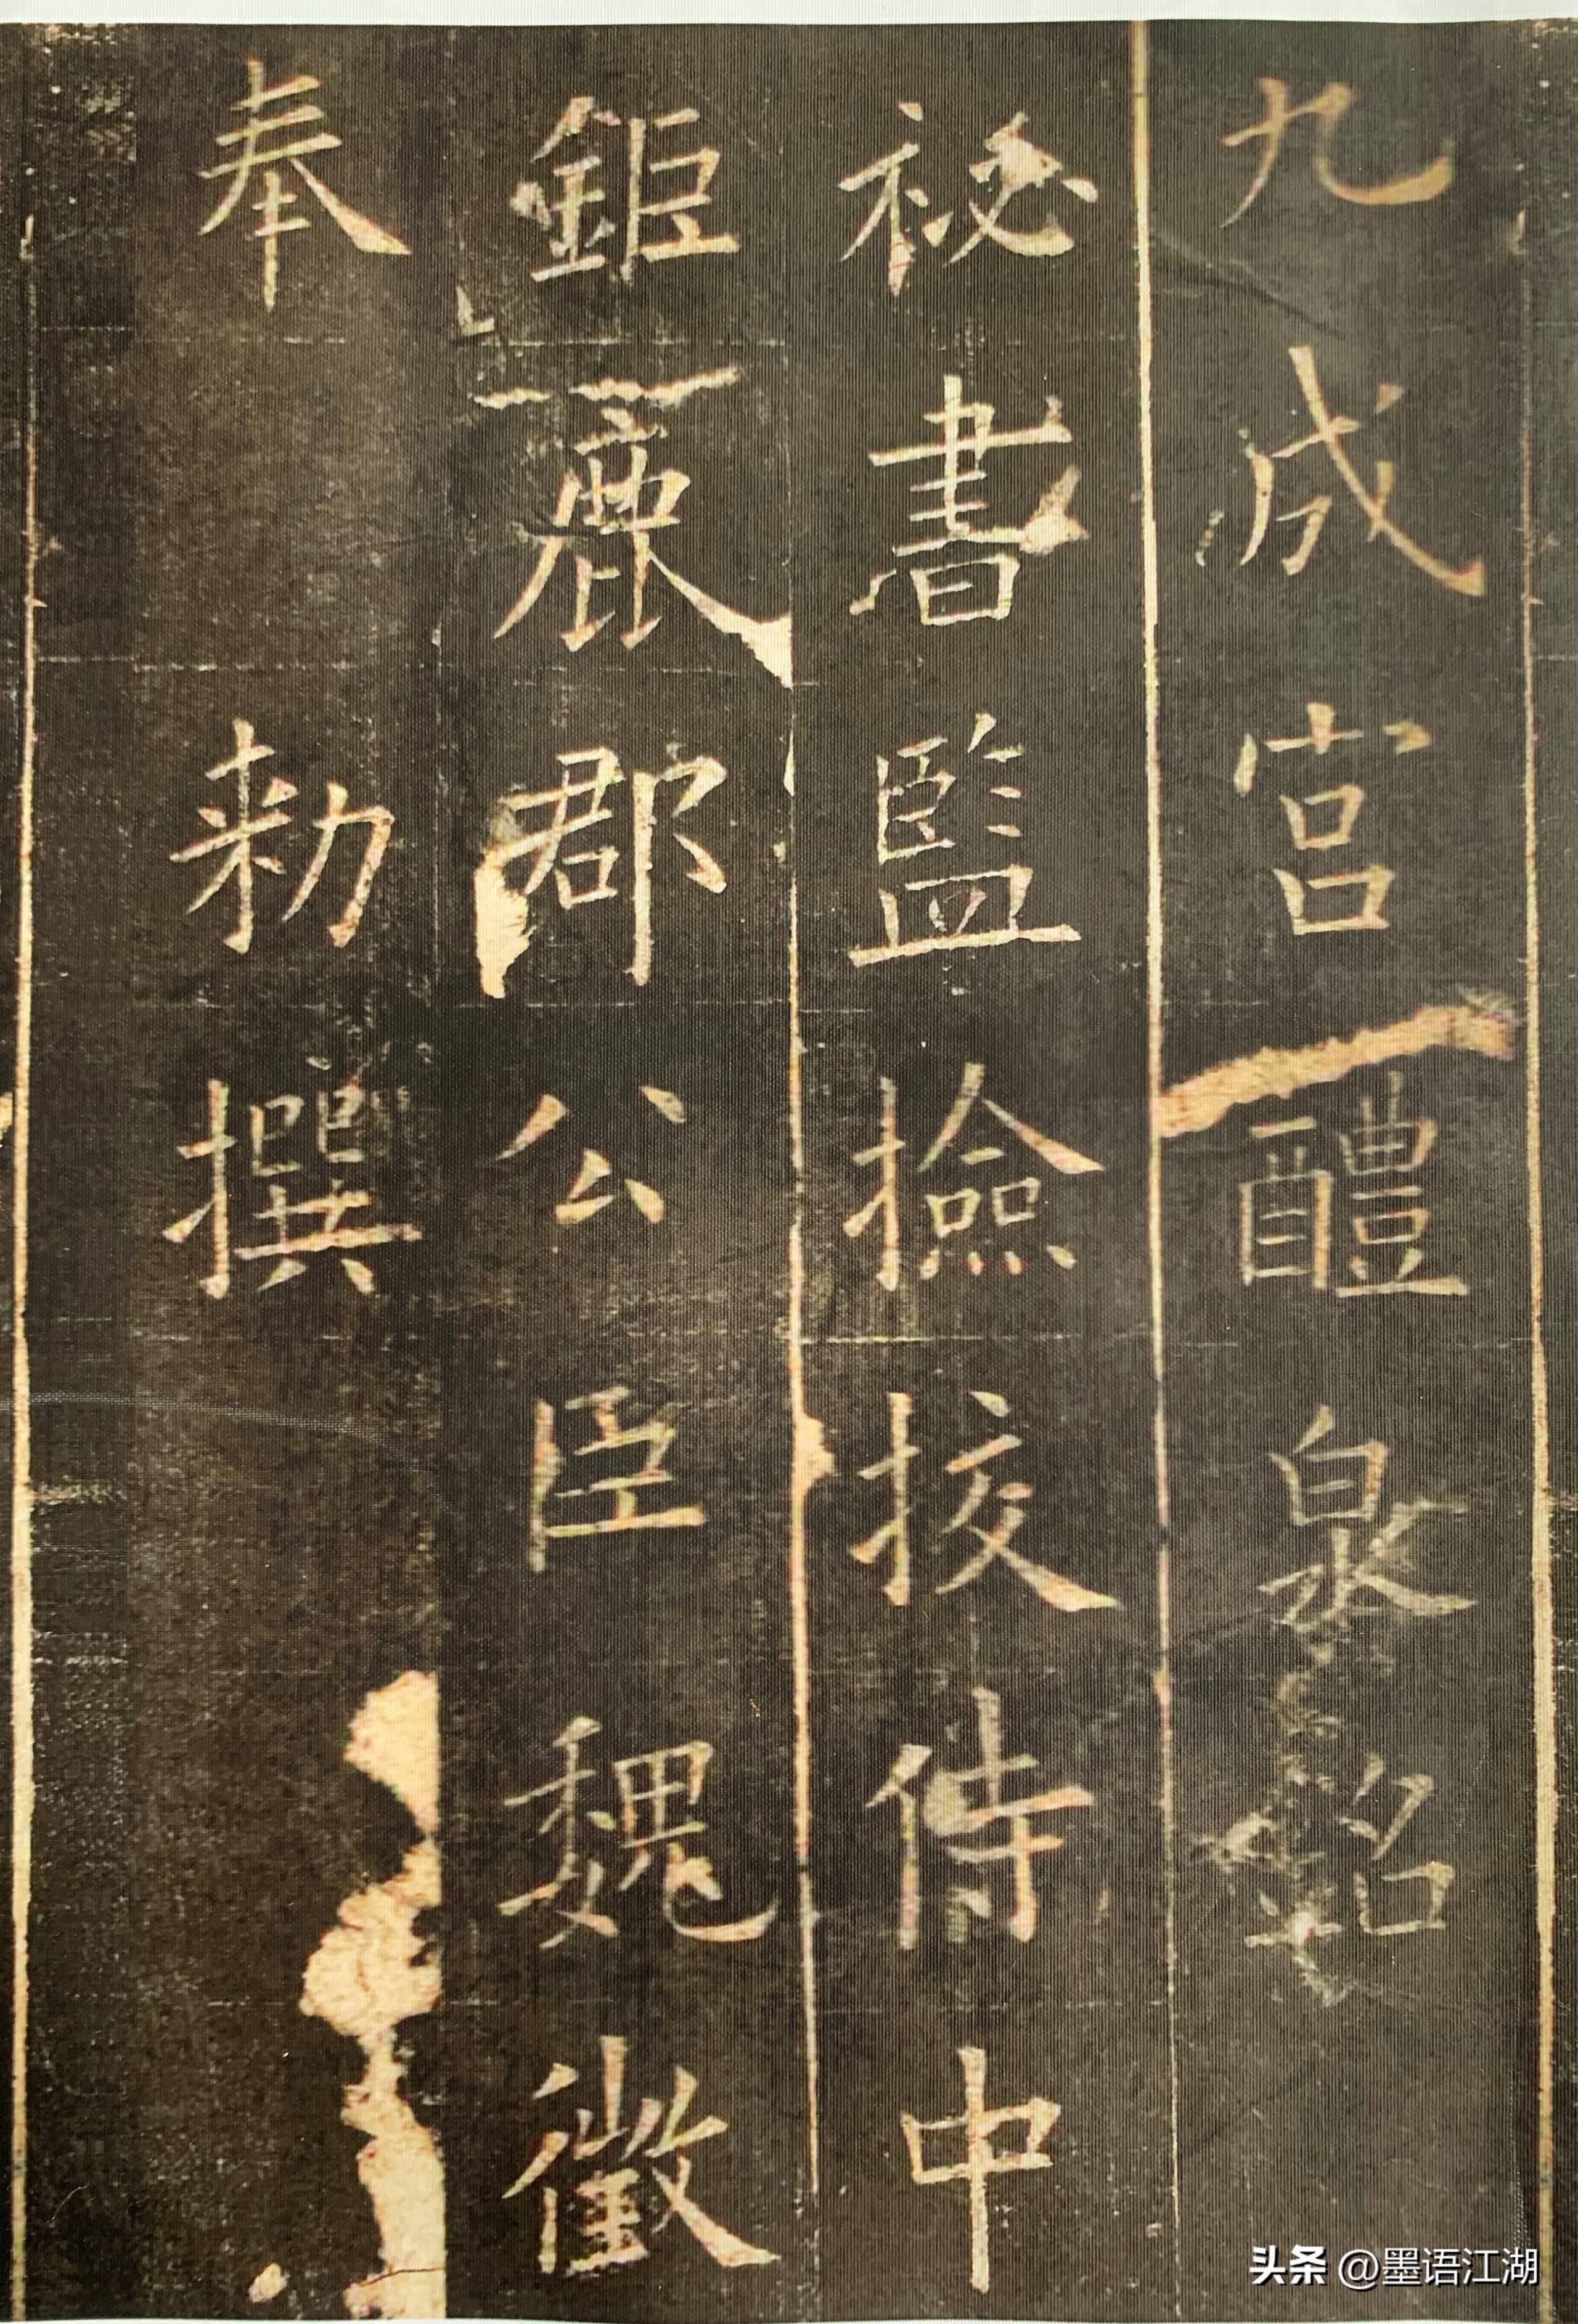 九成宮醴泉銘
秘書監撿挍侍中
鉅鹿郡公臣魏徵
奉勑撰
头条 @墨语江湖